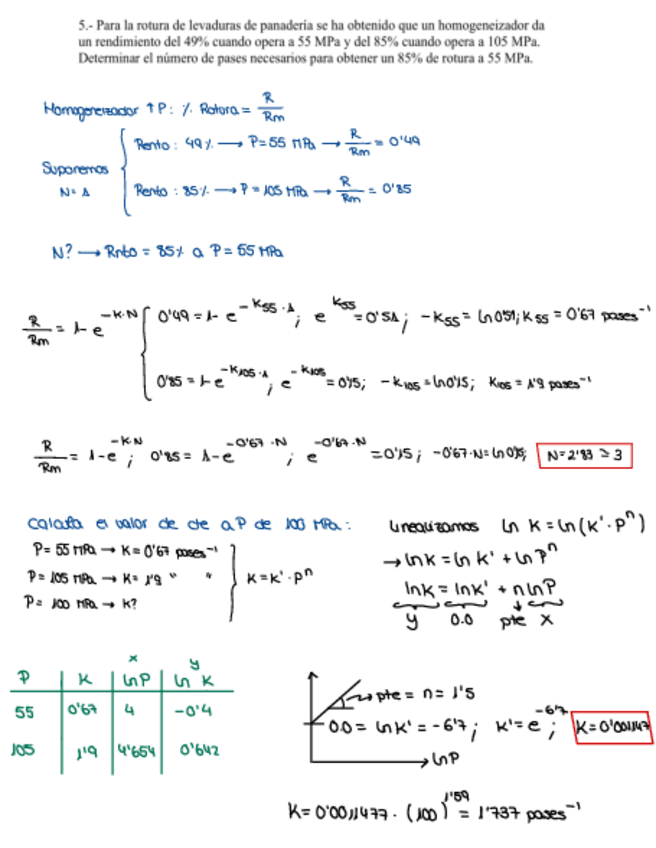 5.- Para la rotura de levaduras de panadería se ha obtenido que un homogeneizador da
un rendimiento del 49% cuando opera a 55 MPa y del 85% cuando opera a 105 MPa.
Determinar el número de pases necesarios para obtener un 85% de rotura a 55 MPa.
Homogeneizador ↑P: % Rotura = R/Rm
Suponemos N=1
Rento: 49% → P=55 MPa → R/Rm = 0'49
Rento: 85% → P=105 MPa → R/Rm = 0'85
N? → Rnto = 85% a P=55 MPa
R/Rm = 1-e^(-K·N)
0'49 = 1-e^(-K55·1); e^(K55) = 0'51; -K55 = ln 0'51; K55 = 0'67 pases⁻¹
0'85 = 1-e^(-K105·1); e^(-K105) = 0'15; -K105 = ln 0'15; K105 = 1'9 pases⁻¹
R/Rm = 1-e^(-KN); 0'85 = 1-e^(-0'67·N); e^(-0'67·N) = 0'15; -0'67·N = ln 0'15; N=2'83 ≃ 3
Calcula el valor de cte a P de 100 MPa:
P= 55 MPa → K=0'67 pases⁻¹
P= 105 MPa → K= 1'9 " "
P= 100 MPa → K?
K=K'·Pⁿ
Linealizamos ln K = ln(K'·Pⁿ)
→ ln K = ln K' + ln Pⁿ
ln K = ln K' + n ln P
y 0.0 pte x
x y
P K ln P ln K
55 0'67 4 -0'4
105 1'9 4'654 0'642
pte = n = 1'5
0.0 = ln K' = -6'7; K' = e^(-6'7); K=0'001147
ln P
K= 0'0011477·(100)^1'59 = 1'737 pases⁻¹